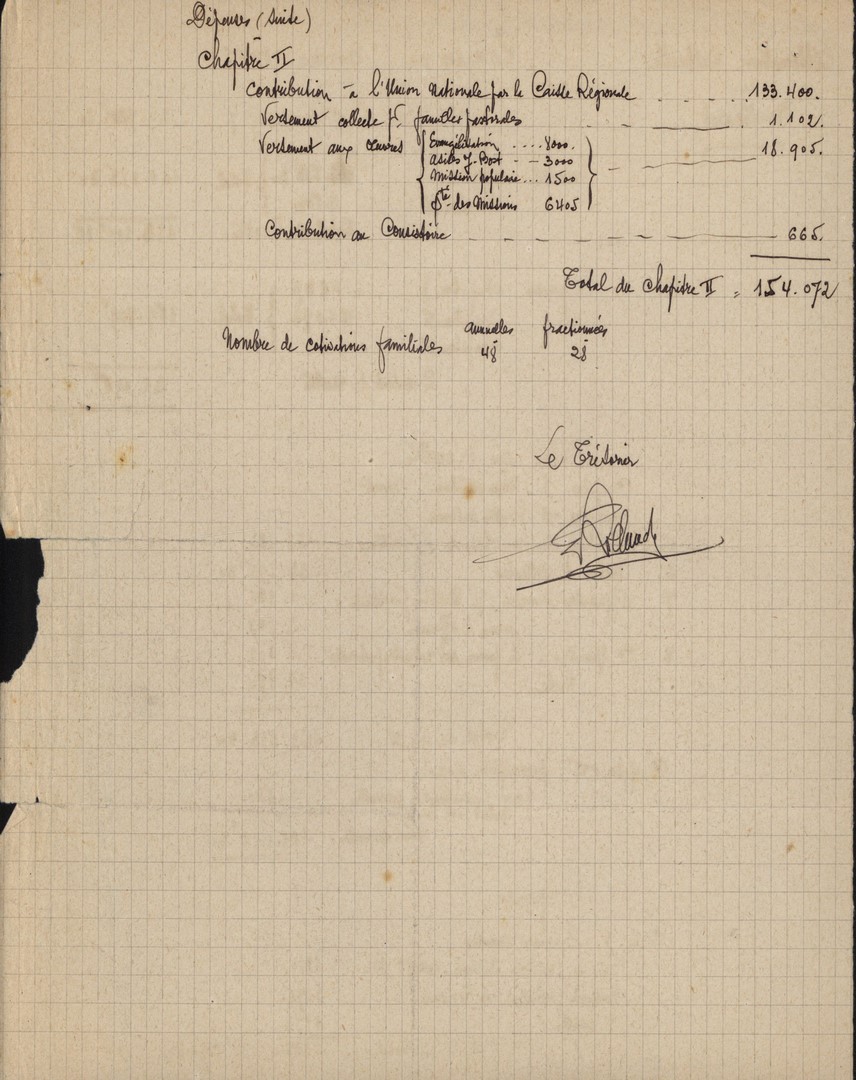 Dépenses (suite)
Chapitre II
Contribution à l'Union Nationale par le Caisse Régionale . . _ . . 133.400.
Versement collecte pr. familles pastorales _ _ 1.102.
Versement aux œuvres { Evangélisation .... 8000. } 18.905.
Asiles J. Bost - - 3000
Mission populaire... 1500
Sté des Missions 6405
Contribution au Consistoire _ _ _ _ 665.
Total du Chapitre II = 154.072
annuelles fractionnées
Nombre de cotisations familiales 48 28
Le Trésorier